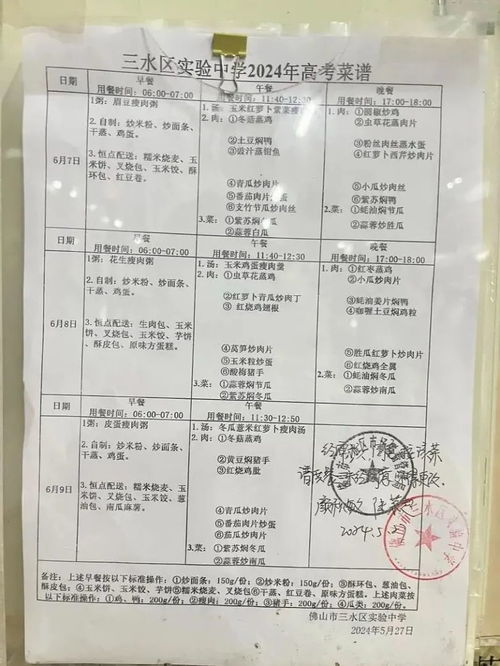 三水区实验中学2024年高考菜谱
日期
早餐
用餐时间：06:00-07:00
午餐
用餐时间：11:40-12:30
晚餐
用餐时间：17:00-18:00
6月7日
1粥：眉豆瘦肉粥
2.自制：炒米粉、炒面条、
干蒸、鸡蛋。
3.恒点配送：糯米烧麦、玉
米饼、叉烧包、玉米饺、酥
环包、红豆卷。
1.汤：玉米红萝卜
2.肉：①冬菇蒸鸡
②土豆焖鸭
③豉汁蒸钳鱼
④青瓜炒肉片
⑤番茄肉片
⑥支竹节瓜炒肉丝
3.菜：①紫苏焖冬瓜
②蒜蓉白瓜
1.肉：①圆椒炒鸡
②虫草花蒸肉片
③粉丝肉蒸水蛋
④红萝卜西芹炒肉片
⑤小瓜炒肉丝
⑥紫苏焖鸭
2.菜：①蚝油焖节瓜
②蒜蓉炒胜瓜
6月8日
早餐
用餐时间：06:00-07:00
午餐
用餐时间：11:40-12:30
晚餐
用餐时间：17:00-18:00
1粥：花生瘦肉粥
2.自制：炒米粉、炒面条、
干蒸、鸡蛋。
3.恒点配送：生肉包、玉米
饼、叉烧包、玉米饺、芋饼
、酥皮包、原味方蛋糕。
1.汤：玉米鸡蛋瘦肉羹
2.肉：①虫草花蒸鸡
②红萝卜青瓜炒肉丁
③红烧鸡翅根
④莴笋炒肉片
⑤玉米粒炒蛋
⑥酸梅猪手
3.菜：①蒜蓉焖节瓜
②紫苏焖冬瓜
1.肉：①红枣蒸鸡
②小瓜炒肉片
③蚝油姜片焖鸭
④咖喱土豆焖鸡粒
⑤胜瓜红萝卜炒肉片
⑥红烧鸡全翼
2.菜：①蚝油焖冬瓜
②蒜蓉炒南瓜
6月9日
早餐
用餐时间：06:00-07:00
午餐
用餐时间：11:30-12:50
1粥：皮蛋瘦肉粥
2.自制：炒米粉、炒面条、
干蒸、鸡蛋。
3.恒点配送：糯米烧麦、玉
米饼、叉烧包、玉米饺、葱
油包、南瓜麻薯。
1.汤：冬瓜薏米红萝卜瘦肉汤
2.肉：①冬菇蒸鸡
②黄豆焖猪手
③红烧鸡肶
④青瓜炒肉片
⑤番茄肉片炒蛋
⑥番茄炒肉片
3.菜：①紫苏焖冬瓜
②蒜蓉炒南瓜
2024.5
备注：上述早餐按以下标准操作：①炒面条：150g/份；②炒米粉：150g/份；③酥环包、葱油包、
南瓜包；④玉米饼、叉烧包、玉米饺⑤糯米烧麦、麦包⑥干蒸、红豆卷、原味方蛋糕。上述肉菜按
以下标准操作：①鸡、鸭：200g/份；②瘦肉：200g/份；③猪手：200g/份；④瓜类：200g/份。
佛山市三水区实验中学
2024年5月27日